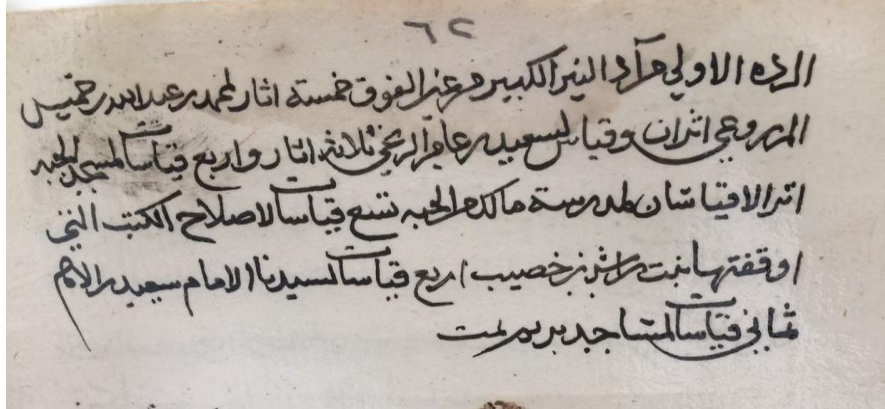 ٦٢
الرده الاولي من آد النير الكبير من عند الفوق خمسة اثار لمحمد بن عبدالله بن خميس
المزروعي اثران وقياس لسعيد بن عامر الريخي ثلاثة اثار واربع قياسات لمسجد الحبه
اثر الا قياسان لمدرسة ما كدم الحبه تسع قياسات لاصلاح الكتب التي
اوقفتها بنت راشد بن خصيب اربع قياسات لسيدنا الامام سعيد بن الامام
ثماني قياسات لمساجد بريد تمت